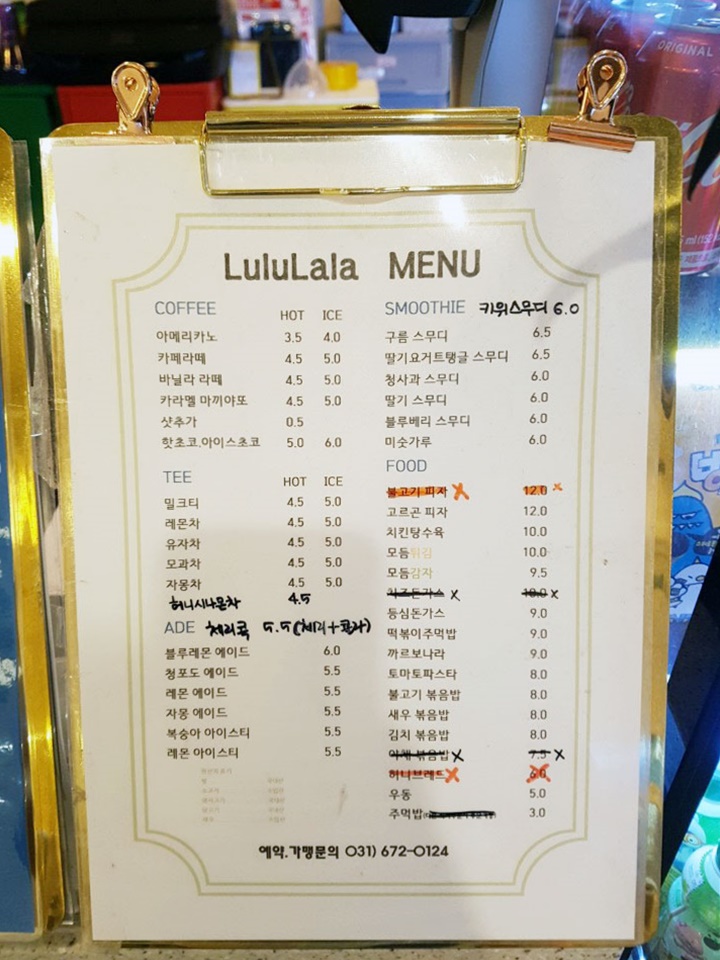 ORIGINAL
LuluLala MENU
COFFEE HOT ICE
아메리카노 3.5 4.0
카페라떼 4.5 5.0
바닐라 라떼 4.5 5.0
카라멜 마끼야또 4.5 5.0
샷추가 0.5
핫초코.아이스초코 5.0 6.0
TEE HOT ICE
밀크티 4.5 5.0
레몬차 4.5 5.0
유자차 4.5 5.0
모과차 4.5 5.0
자몽차 4.5 5.0
허니시나몬차 4.5
ADE 체리콕 5.5 (체리+콜라)
블루레몬 에이드 6.0
청포도 에이드 5.5
레몬 에이드 5.5
자몽 에이드 5.5
복숭아 아이스티 5.5
레몬 아이스티 5.5
SMOOTHIE 키위스무디 6.0
구름 스무디 6.5
딸기요거트탱글 스무디 6.5
청사과 스무디 6.0
딸기 스무디 6.0
블루베리 스무디 6.0
미숫가루 6.0
FOOD
불고기 피자 X 12.0 x
고르곤 피자 12.0
치킨탕수육 10.0
모둠튀김 10.0
모둠감자 9.5
치즈돈가스 x 10.0 x
등심돈가스 9.0
떡볶이주먹밥 9.0
까르보나라 9.0
토마토파스타 8.0
불고기 볶음밥 8.0
새우 볶음밥 8.0
김치 볶음밥 8.0
야채 볶음밥 X 7.5 X
허니브레드 X 6.0 X
우동 5.0
주먹밥 3.0
예약.가맹문의 031) 672-0124